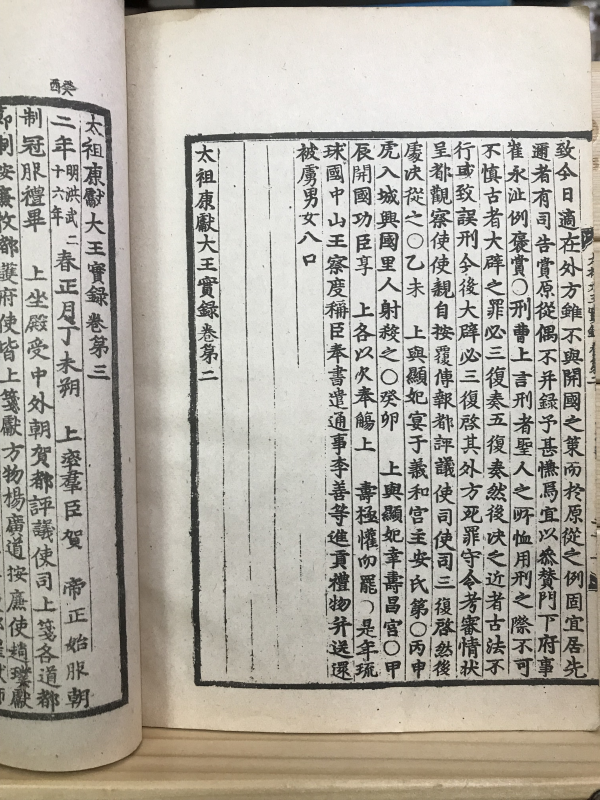 致今日適在外方雖不與開國之策而於原從之例固宜居先
邇者有司告賞原從偶不幷錄予甚憮焉宜以叅贊門下府事
崔永沚例褒賞○刑曹上言刑者聖人之所恤用刑之際不可
不慎古者大辟之罪必三復奏五復奏然後決之近者古法不
行或致誤刑今後大辟必三復啓其外方死罪守令考審情狀
呈都觀察使使親自按覆傳報都評議使司使司三復啓然後
處決從之○乙未 上與顯妃宴于義和宮主安氏第○丙申
虎入城興國里人射殺之○癸卯 上與顯妃幸壽昌宮○甲
辰開國功臣享 上各以次奉觴上 壽極懽而罷○是年琉
球國中山王察度稱臣奉書遣通事李善等進貢禮物幷送還
被虜男女八口
太祖康獻大王實錄卷第二
太祖康獻大王實錄卷第三
癸酉
二年 明洪武二十六年 春正月丁未朔 上率羣臣賀 帝正始服朝
制冠服禮畢 上坐殿受中外朝賀都評議使司上箋各道都
節制按廉牧都護府使皆上箋獻方物楊廣道按廉使趙璞獻